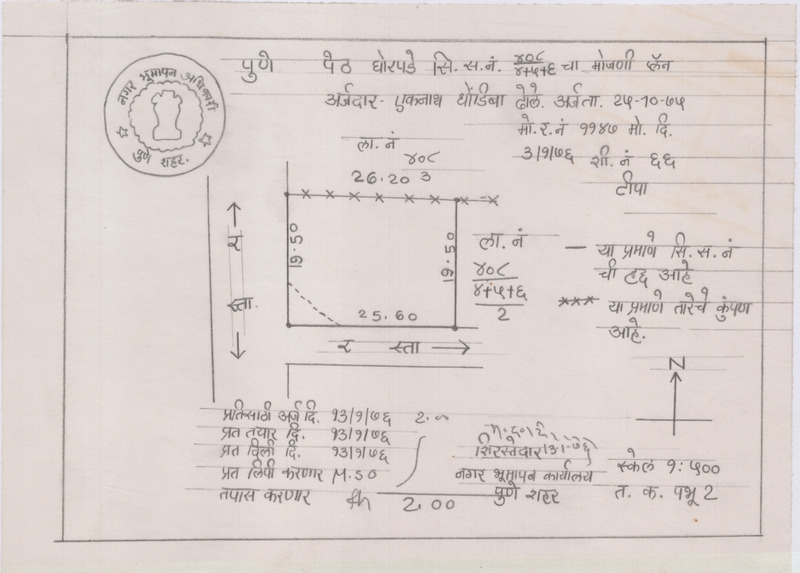 नगर भूमापन अधिकारी
पुणे शहर.
पुणे पेठ घोरपडे सि. स. नं. ४०८/४+५+६ चा मोजणी प्लॅन
अर्जदार- एकनाथ धोंडिबा ढोले. अर्जता. २५-१०-७५
मो. र. नं ११४७ मो. दि.
३/१/७६ शी. नं ६६
टीपा
ला. नं
४०८
3
26.20
19.50
19.50
25.60
र
स्ता.
र स्ता
ला. नं
४०८
४+५+६
2
— या प्रमाणे सि. स. नं
ची हद्द आहे
××× या प्रमाणे तारेचे कुंपण
आहे.
N
प्रतिसाठी अर्ज दि. १३/१/७६ 2.00
प्रत तयार दि. १३/१/७६
प्रत दिली दि. १३/१/७६
प्रत लिपी करणार M.50
तपास करणार
2.00
शिरस्तेदार
नगर भूमापन कार्यालय
पुणे शहर
स्केल १: ५००
त. क. पभू 2